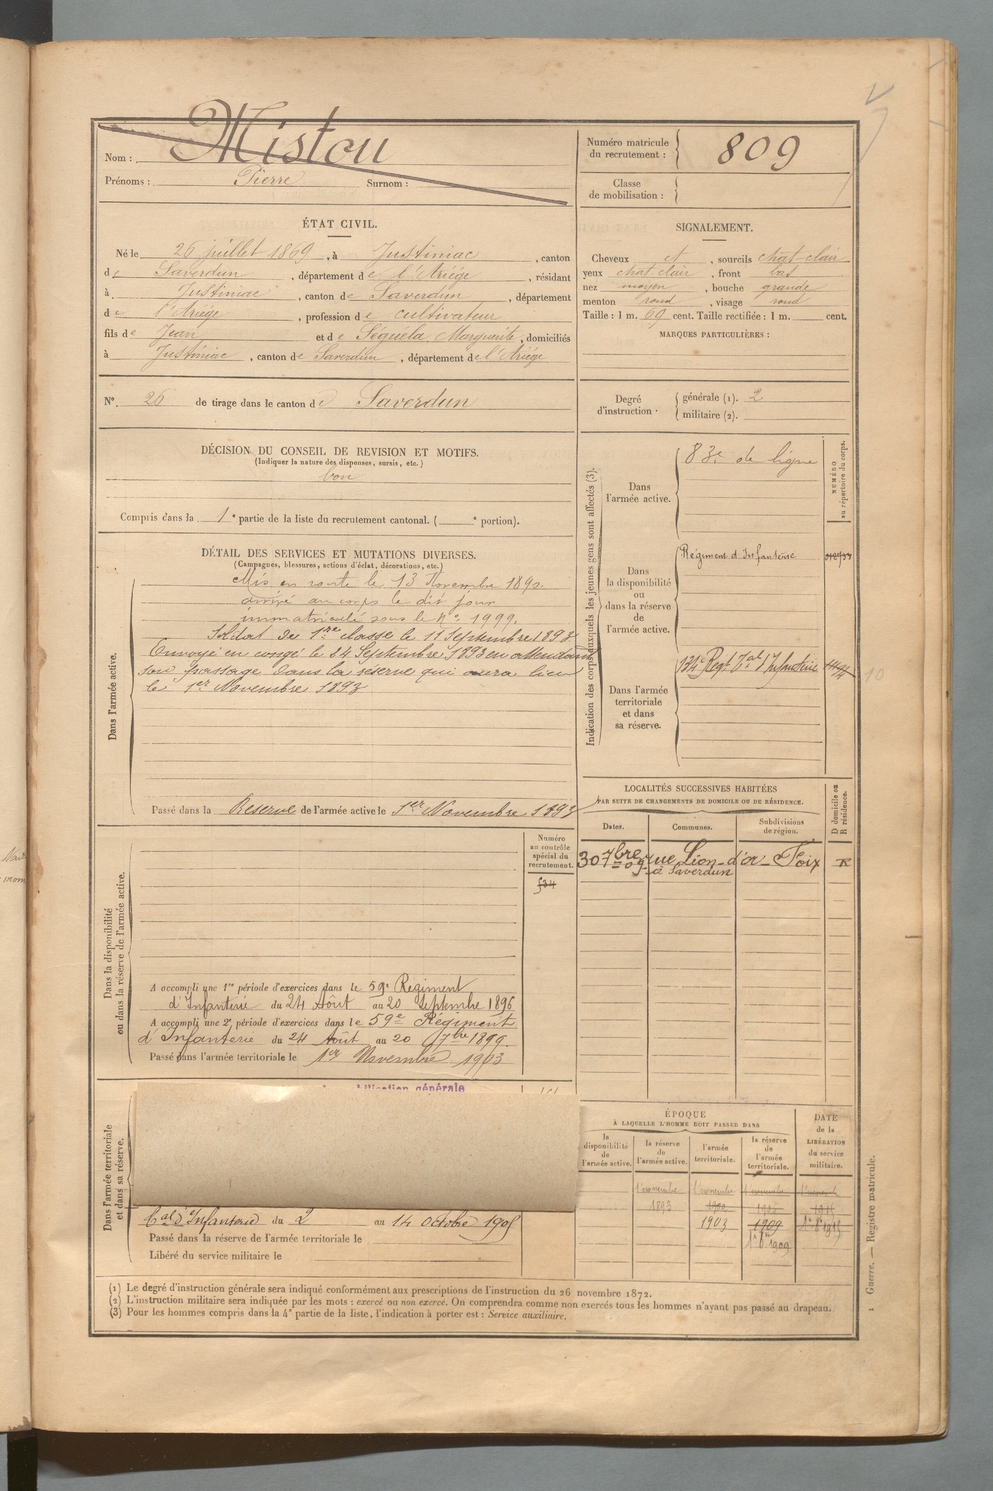 Nom : Mistou
Prénoms : Pierre Surnom :
Numéro matricule du recrutement : 809
Classe de mobilisation :
ÉTAT CIVIL.
Né le 26 juillet 1869, à Justiniac, canton
de Saverdun, département de l'Ariége, résidant
à Justiniac, canton de Saverdun, département
de l'Ariége, profession de cultivateur
fils de Jean et de Séguéla Marguerite, domiciliés
à Justiniac, canton de Saverdun, département de l'Ariége
N° 26 de tirage dans le canton de Saverdun
SIGNALEMENT.
Cheveux et, sourcils chat-clair
yeux chat clair, front bas
nez moyen, bouche grande
menton rond, visage rond
Taille : 1 m. 69 cent. Taille rectifiée : 1 m. cent.
MARQUES PARTICULIÈRES :
Degré d'instruction
générale (1). 2
militaire (2).
DÉCISION DU CONSEIL DE REVISION ET MOTIFS.
(Indiquer la nature des dispenses, sursis, etc.)
bon
Compris dans la 1e partie de la liste du recrutement cantonal. ( e portion).
DÉTAIL DES SERVICES ET MUTATIONS DIVERSES.
(Campagnes, blessures, actions d'éclat, décorations, etc.)
Dans l'armée active.
Mis en route le 13 Novembre 1890.
arrivé au corps le dit jour
immatriculé sous le N° 1999.
Soldat de 1re classe le 11 Septembre 1893
Envoyé en congé le 24 Septembre 1893 en attendant
son passage dans la réserve qui aura lieu
le 1er Novembre 1893
Passé dans la Réserve de l'armée active le 1er Novembre 1893
Indication des corps auxquels les jeunes gens sont affectés (3).
NUMÉRO au répertoire du corps.
Dans l'armée active.
83e de ligne
Dans la disponibilité ou dans la réserve de l'armée active.
Régiment d'Infanterie
Dans l'armée territoriale et dans sa réserve.
134e Régt Tal d'Infanterie
LOCALITÉS SUCCESSIVES HABITÉES
PAR SUITE DE CHANGEMENTS DE DOMICILE OU DE RÉSIDENCE.
Dates. Communes. Subdivisions de région. D domicile ou R résidence.
30 7bre 09 rue Lion-d'or à Saverdun Foix R
Dans la disponibilité ou dans la réserve de l'armée active.
Numéro au contrôle spécial du recrutement.
A accompli une 1re période d'exercices dans le 59e Régiment
d'Infanterie du 24 Août au 20 Septembre 1896
A accompli une 2e période d'exercices dans le 59e Régiment
d'Infanterie du 24 Août au 20 7bre 1899.
Passé dans l'armée territoriale le 1er Novembre 1903
Dans l'armée territoriale et dans sa réserve.
générale
d'Infanterie du 2 au 14 Octobre 1905
Passé dans la réserve de l'armée territoriale le
Libéré du service militaire le
ÉPOQUE
À LAQUELLE L'HOMME DOIT PASSER DANS
la disponibilité de l'armée active.
la réserve de l'armée active.
l'armée territoriale.
la réserve de l'armée territoriale.
DATE de la LIBÉRATION du service militaire.
1893
1903
1909
(1) Le degré d'instruction générale sera indiqué conformément aux prescriptions de l'instruction du 26 novembre 1872.
(2) L'instruction militaire sera indiquée par les mots : exercé ou non exercé. On comprendra comme non exercés tous les hommes n'ayant pas passé au drapeau.
(3) Pour les hommes compris dans la 4e partie de la liste, l'indication à porter est : Service auxiliaire.
1 Guerre. — Registre matricule.